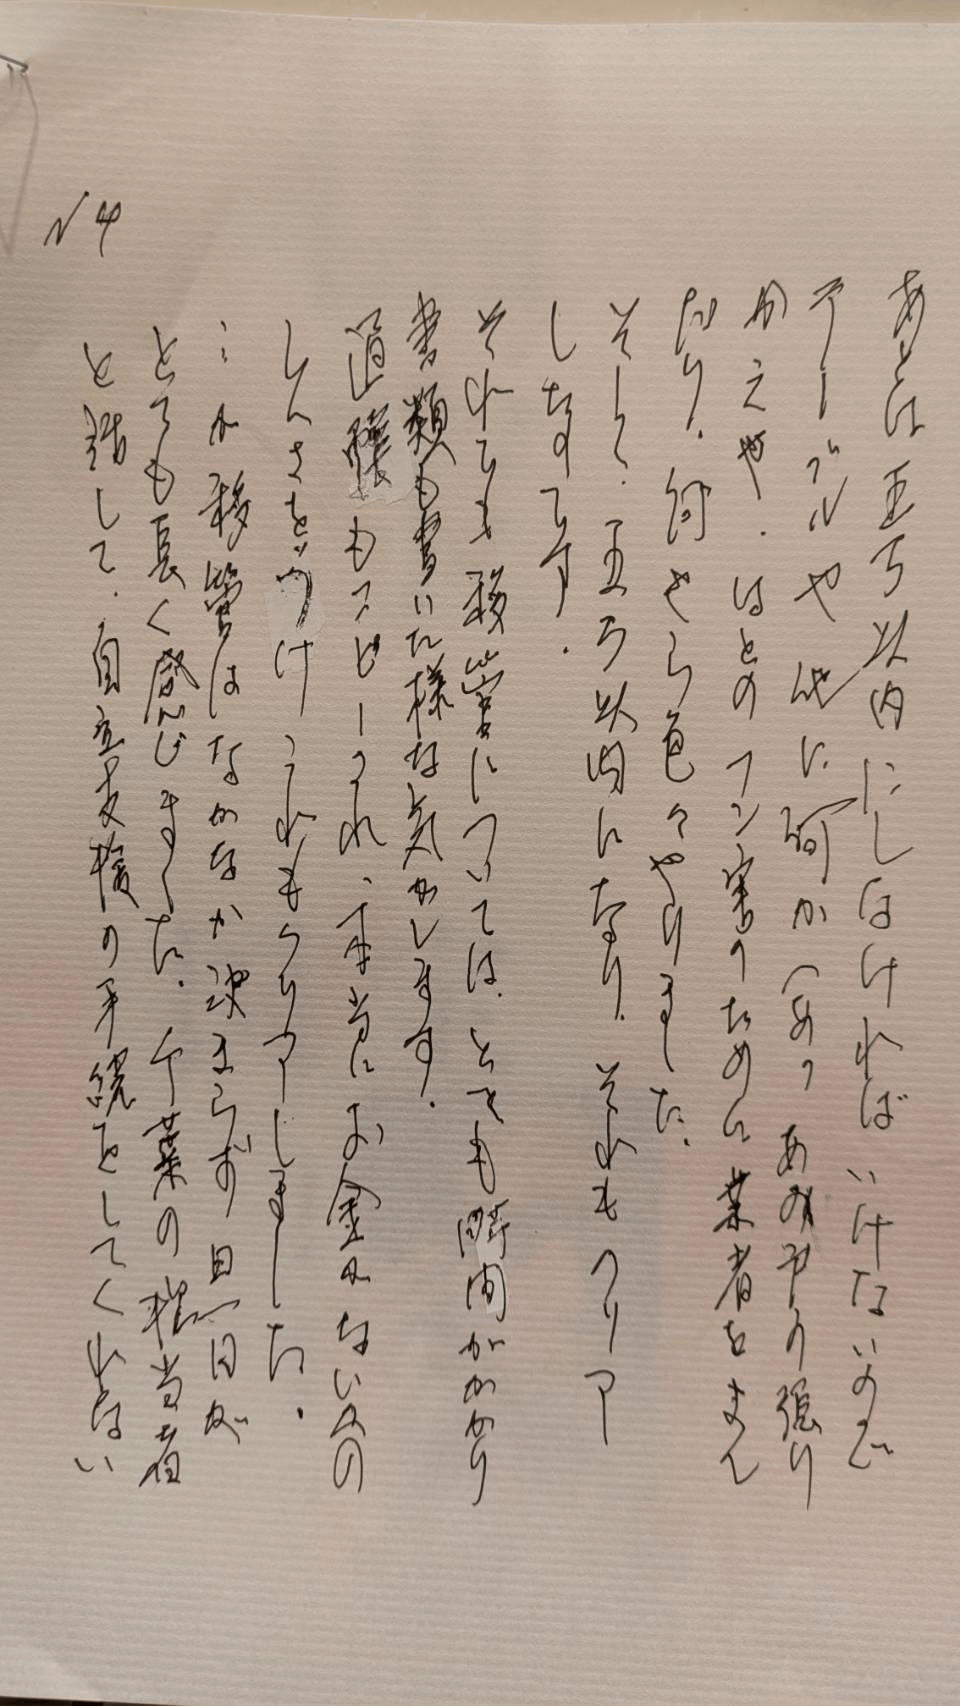 あとは五万以内にしなければいけないので
テーブルや他に何か(あっあみ戸の張り
かえや.はとのフン害のために業者をまん
だり.何やら色々やりました.
そして.五万以内になり.それもクリアー
しなすです.
それでも移管については.とても時間がかかり
書類も書いた様な気がします.
道程もコピーうれ、本当にお金がないかの
しんさをうけこれもクリアーしました.
が移管はなかなか決まらず思日が
とても長く感じました.千葉の担当者
と話して.自立支援の手続をしてくれない
N4